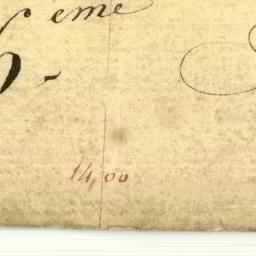 eme
6-
14,00